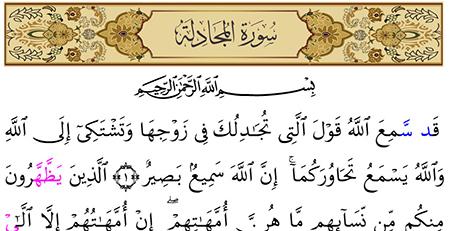 سُورَةُ المُجَادلَة
بِسْمِ ٱللَّهِ ٱلرَّحْمَٰنِ ٱلرَّحِيمِ
قَد سَّمِعَ ٱللَّهُ قَوْلَ ٱلَّتِى تُجَٰدِلُكَ فِى زَوْجِهَا وَتَشْتَكِىٓ إِلَى ٱللَّهِ
وَٱللَّهُ يَسْمَعُ تَحَاوُرَكُمَآۚ إِنَّ ٱللَّهَ سَمِيعُۢ بَصِيرٌ ﴿١﴾ ٱلَّذِينَ يَظَّهَّرُونَ
مِنكُم مِّن نِّسَآئِهِم مَّا هُنَّ أُمَّهَٰتِهِمْۖ إِنْ أُمَّهَٰتُهُمْ إِلَّا ٱلَّٰٓىْ